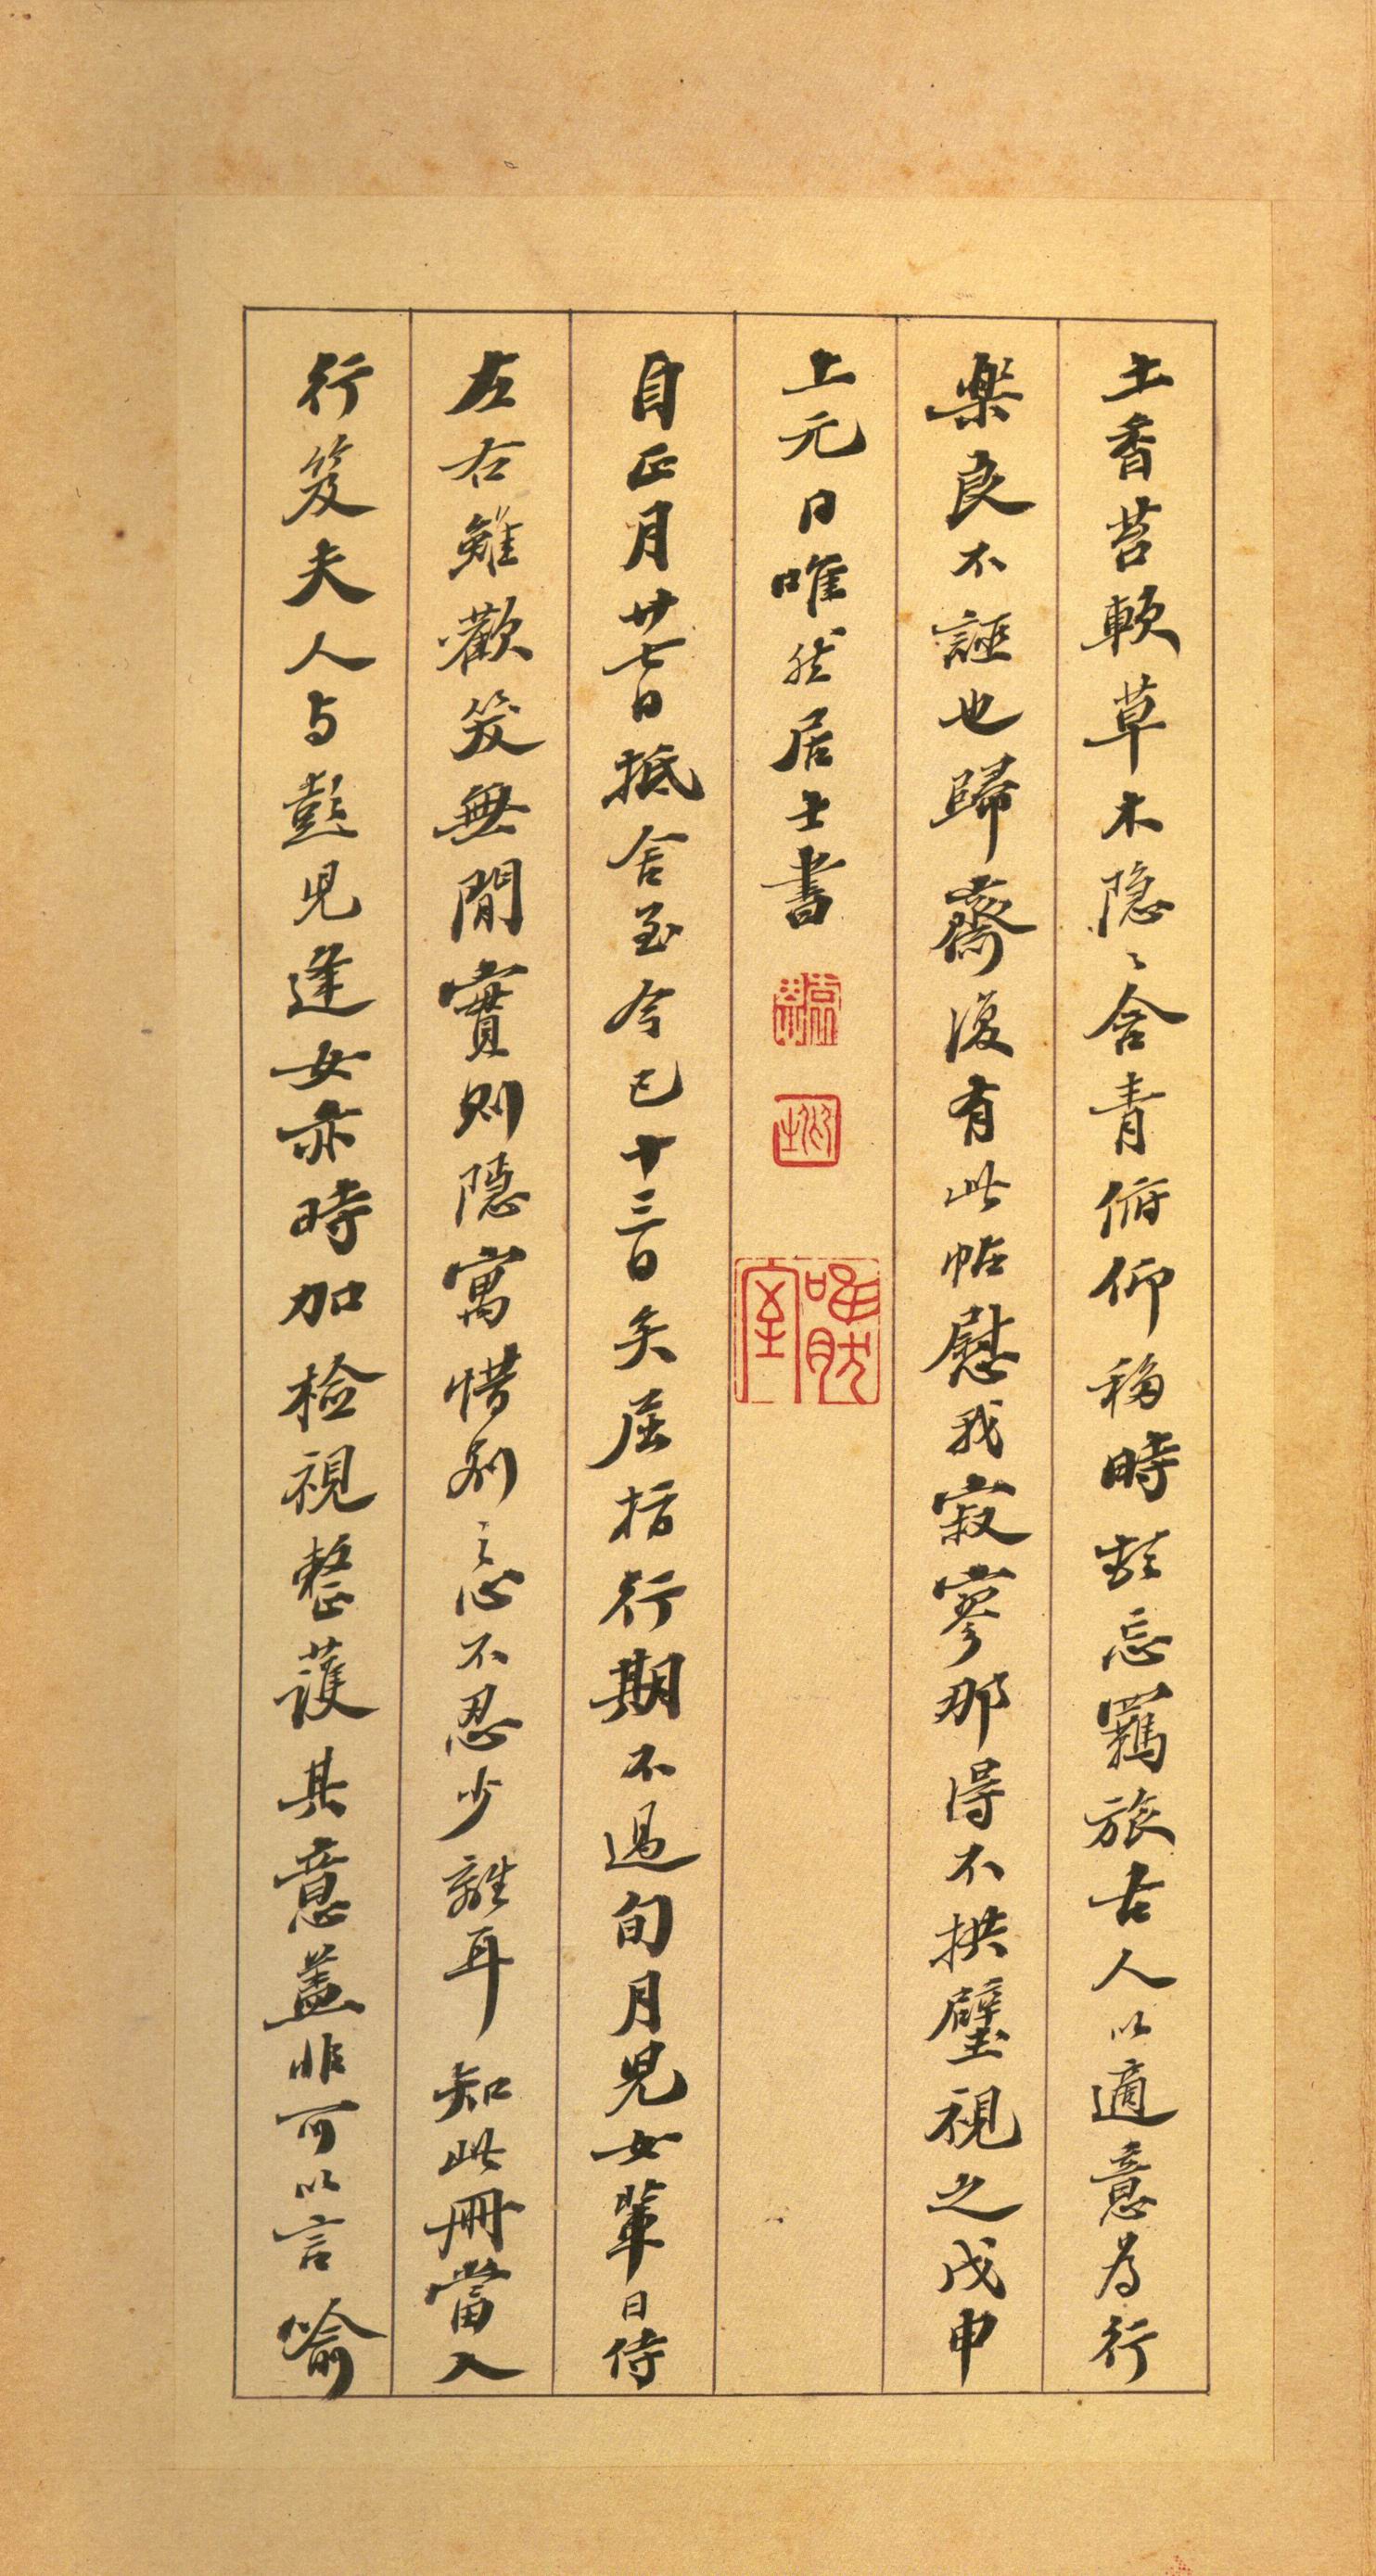 土香苔軟草木隐〻含青俯仰移時頓忘羈旅古人以適意為行
樂良不誣也歸齋復有此帖慰我寂寥那得不拱璧視之戊申
上元日唯然居士書
自正月廿七日抵舍至今已十三日矣屈指行期不過旬月兒女輩日侍
左右雖歡笑無閒實則隠寓惜別之心不忍少離耳知此冊當入
行笈夫人与彭兒逢女亦時加檢視整護其意蓋非可以言喻